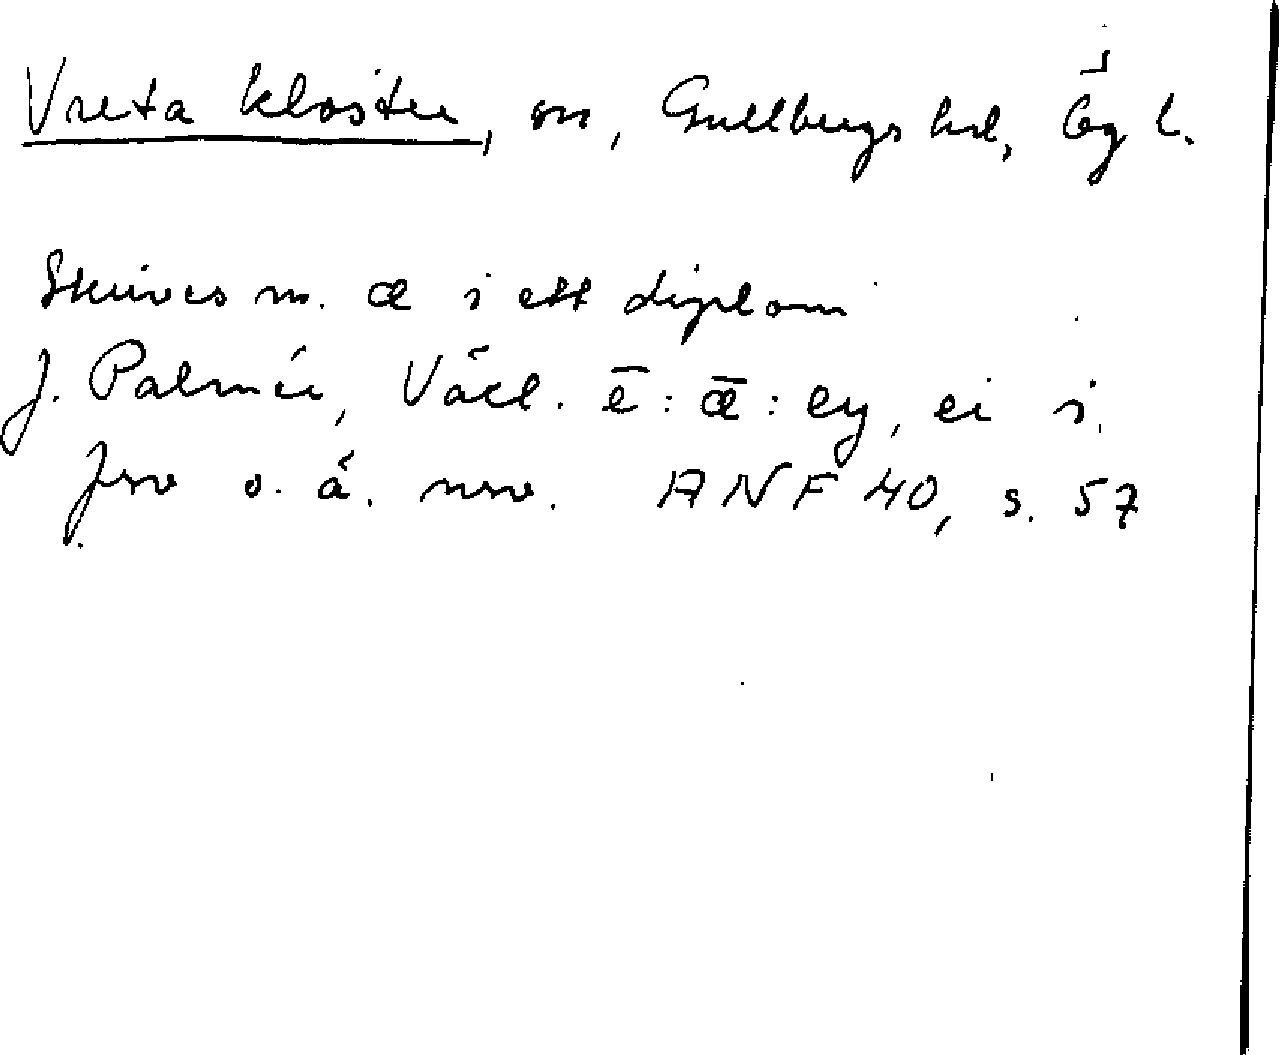 Vreta kloster, sn, Gullbergs hd, Ög l.
Skrives m. æ i ett diplom
J. Palmér, Växl. ē : ǣ : ey, ei i
fsv o. ä. nsv. ANF 40, s. 57